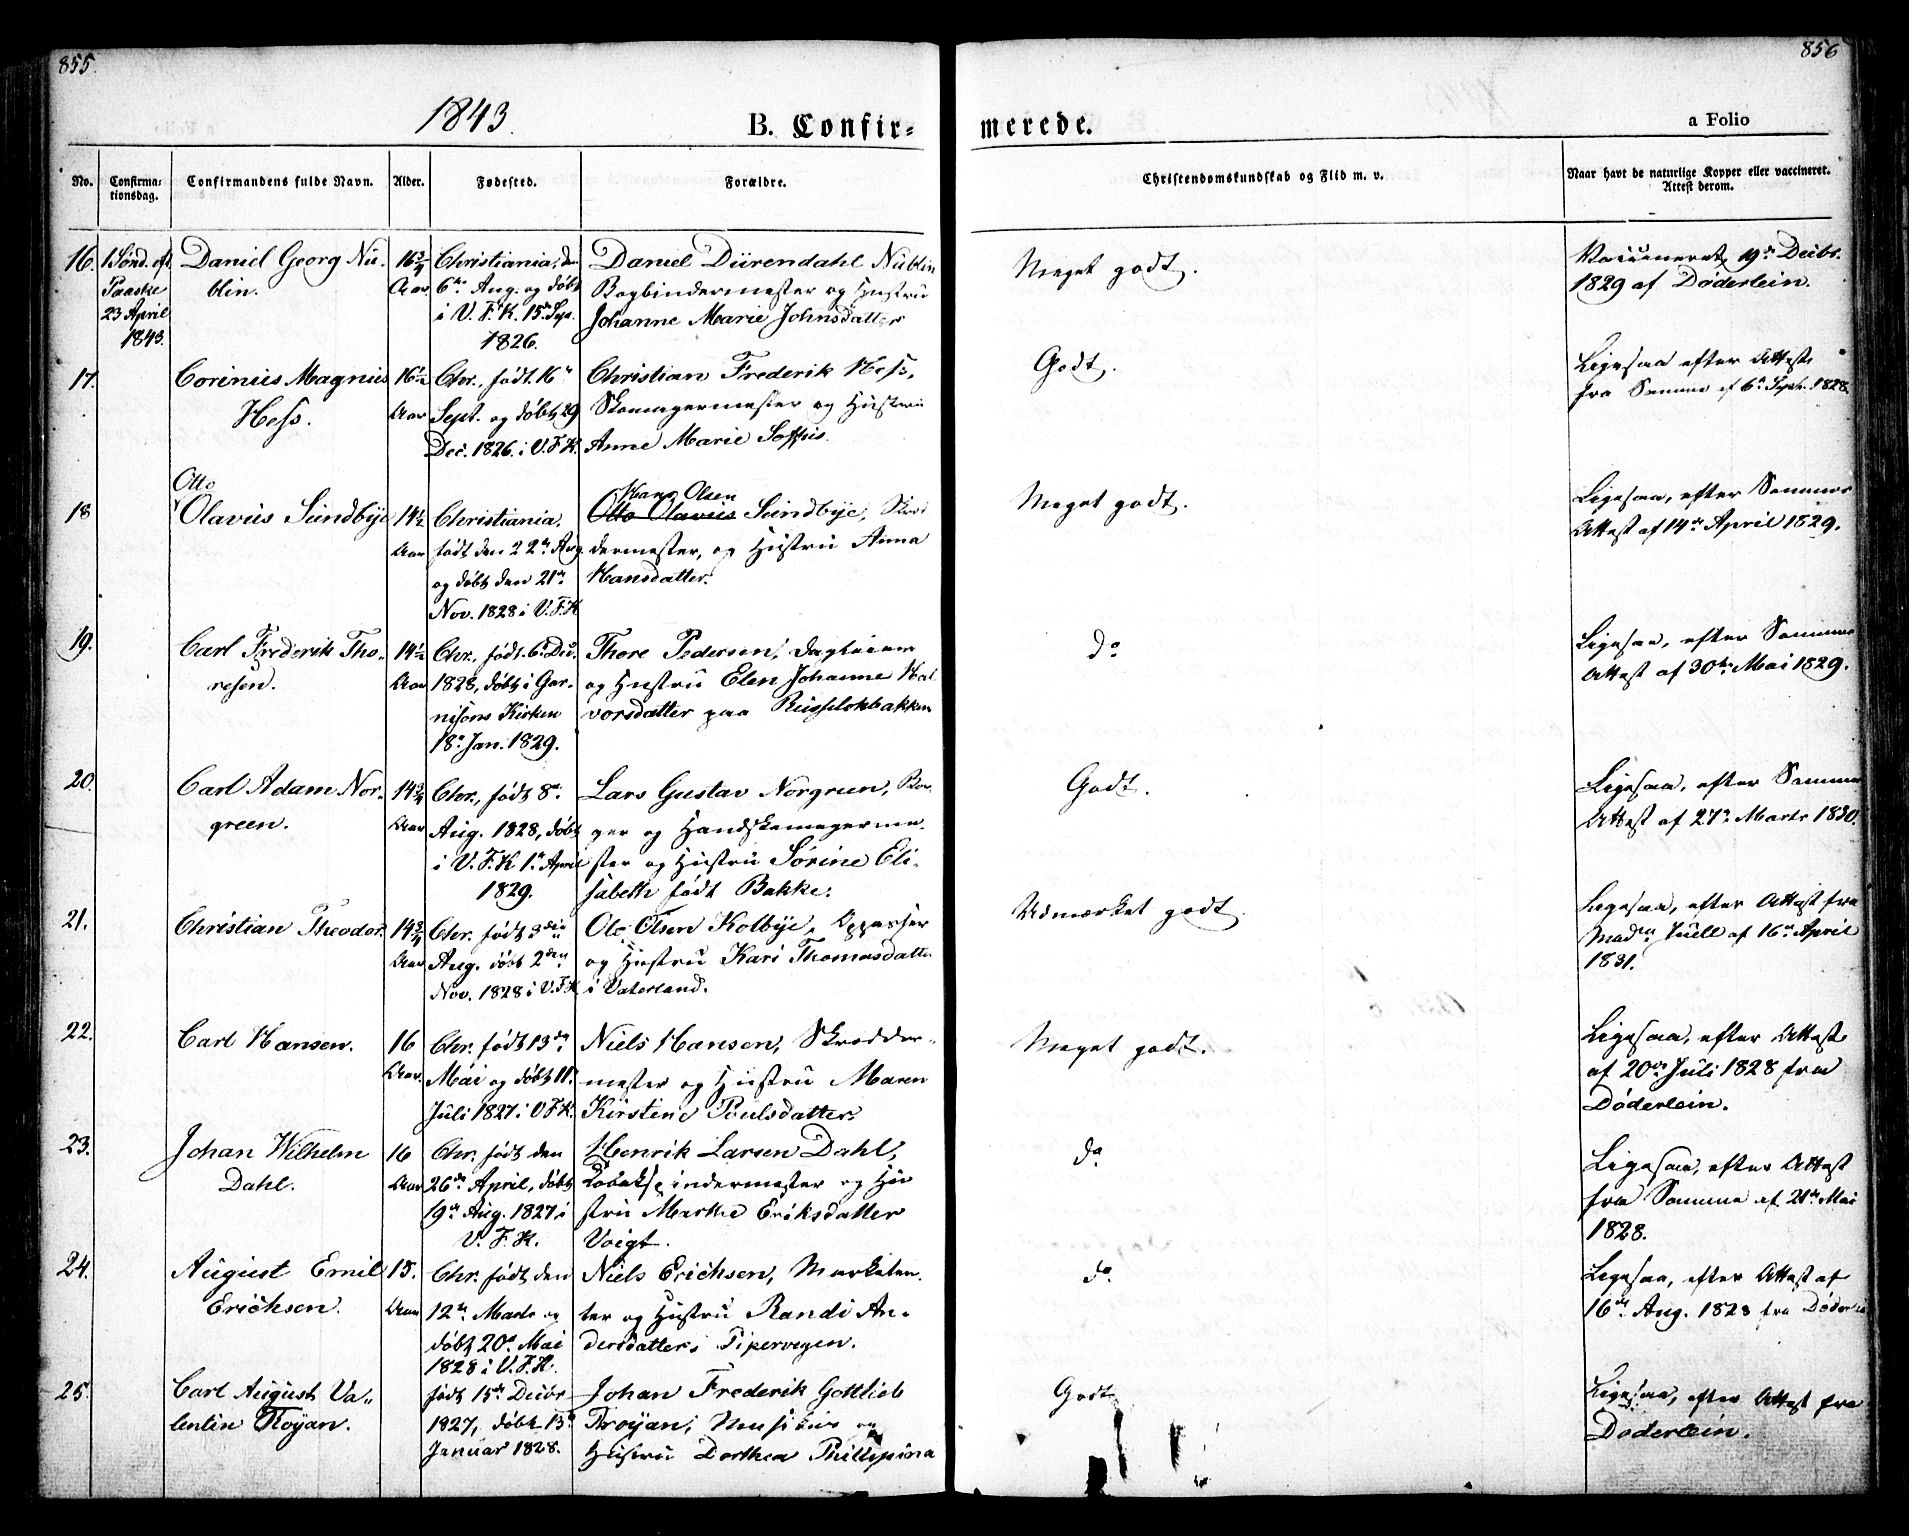 855.
856
1843.
B. Confir-
merede.
a Folio
No.
Confirma-
tionsdag.
Confirmandens fulde Navn.
Alder.
Fødested.
Forældre.
Christendomskundskab og Flid m. v.
Naar havt de naturlige Kopper eller vaccineret.
Attest derom.
16.
1 Sønd. eft.
Paaske
23 April
1843.
Daniel Georg Nü-
blin.
16 3/4
Aar
Christiania, den
6te Aug. og døbt
i V. F. K. 15de Sep.
1826.
Daniel Dürendahl Nüblin
Bogbindermester og Hustru
Johanne Marie Johnsdatter
Meget godt.
Vaccineret 19de Decbr.
1829 af Døderlein.
17.
Corinius Magnus
Hess.
16 1/2
Aar
Chr., født 16de
Sept. og døbt 29
Dec. 1826. i V.F.K.
Christian Frederik Hess,
Skomagermester og Hustru
Anne Marie
Godt.
Ligesaa efter Attest
fra Samme af 6te Septr. 1828.
18
Otto
Olavus Sundbye
14 1/2
Aar
Christiania,
født den 22de Aug.
og døbt den 21de
Nov. 1828 i V.F.K
Hans Olsen
Otto Olavus Sundbye,
dermester, og Hustru Anna
Hansdatter.
Meget godt.
Ligesaa, efter Sammes
Attest af 14de April 1829.
19.
Carl Frederik Tho-
resen.
14 1/2
Aar
Chr., født 6te Dec.
1828, døbt i Gar-
nisons Kirken
18de Jan. 1829.
Thore Pedersen,
og Hustru Elen Johanne Hal
vorsdatter paa Russelokbakken
do
Ligesaa, efter Sammes
Attest af 30te Mai 1829.
20.
Carl Adam Nor-
green.
14 3/4
Aar
Chr., født 8de
Aug. 1828, døbt
i V. F. K 1ste April
1829.
Lars Gustav Norgreen, Bor-
ger og Handskemagerme-
ster og Hustru Sørine Eli-
sabeth født Bakke.
Godt.
Ligesaa, efter Sammes
Attest af 27de Marts 1830.
21.
Christian Theodor.
14 3/4
Aar
Chr. født 3die
Aug. døbt 2den
Nov. 1828 i V.F.K
Ole Olsen Kolbye, Oppasser
og Hustru Kari Thomasdatter
i Vaterland.
Udmærket godt.
Ligesaa, efter Attest fra
Juell af 16de April
1831.
22.
Carl Hansen.
16
Aar.
Chr. født 13de
Mai og døbt 11te
Juli 1827 i V.F.K.
Niels Hansen, Skrædder-
mester og Hustru Maren
Kirstine Poulsdatter.
Meget godt.
Ligesaa, efter Attest
af 20de Juli 1828 fra
Døderlein.
23.
Johan Wilhelm
Dahl.
16
Aar
Chr. født den
26de April, døbt
19de Aug. 1827 i
V. F. K.
Henrik Larsen Dahl,
Tobakspindermester og Hu
stru Marthe Eriksdatter
Voigt.
do
Ligesaa, efter Attest
fra Samme af 21de Mai
1828.
24.
August Emil
Erichsen.
15.
Aar
Chr. født den
12te Marts og
døbt 20de Mai
1828 i V.F.K.
Niels Erichsen, Marketen-
ter og Hustru Randi An-
dersdatter i Pipervigen.
do.
Ligesaa, efter Attest af
16de Aug. 1828 fra Døderlein
25.
Carl August Va-
lentin Troyan.
født 15de Decbr
1827, døbt 13de
Januar 1828.
Johan Frederik Gottlieb
Troyan, Musikus og
Hustru Dorthea Phillipina
Godt
Ligesaa, efter Attest fra
Døderlein.